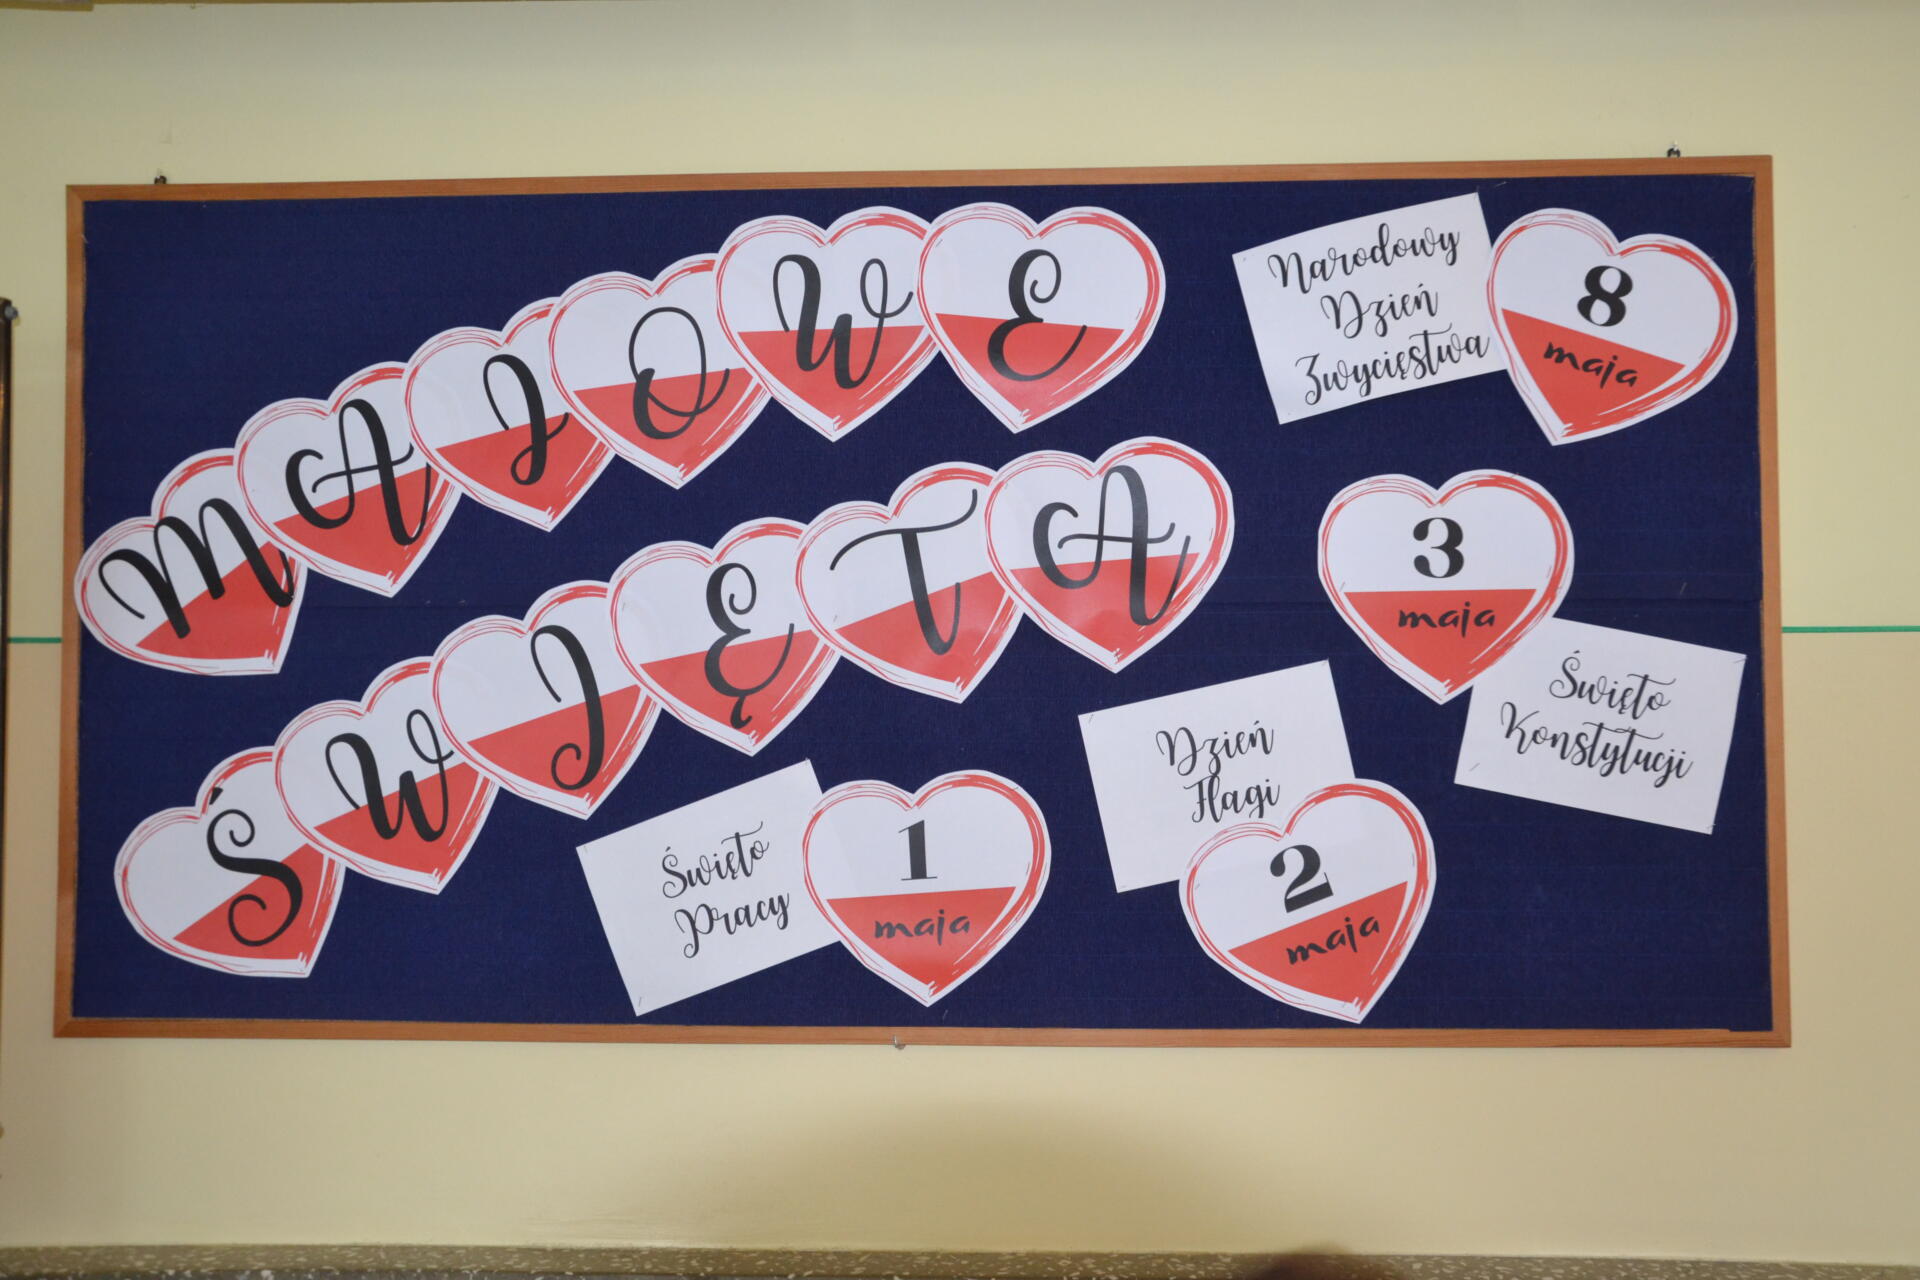 MAJOWE
ŚWIĘTA
Narodowy
Dzień
Zwycięstwa
8
maja
3
maja
Święto
Konstytucji
Dzień
Flagi
2
maja
Święto
Pracy
1
maja